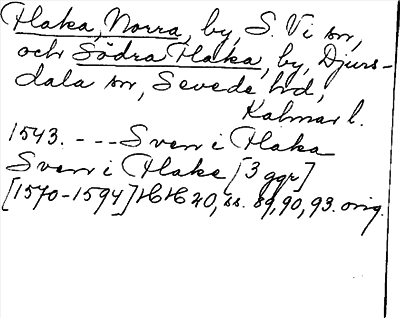 Flaka, Norra, by, S. Vi sn,
och Södra Flaka, by, Djurs-
dala sn, Sevede hd,
Kalmar l.
1543. - - - Sven i Flaka
Sven i Flake [3 ggr]
[1570-1594] HH 20, ss. 89, 90, 93. orig.